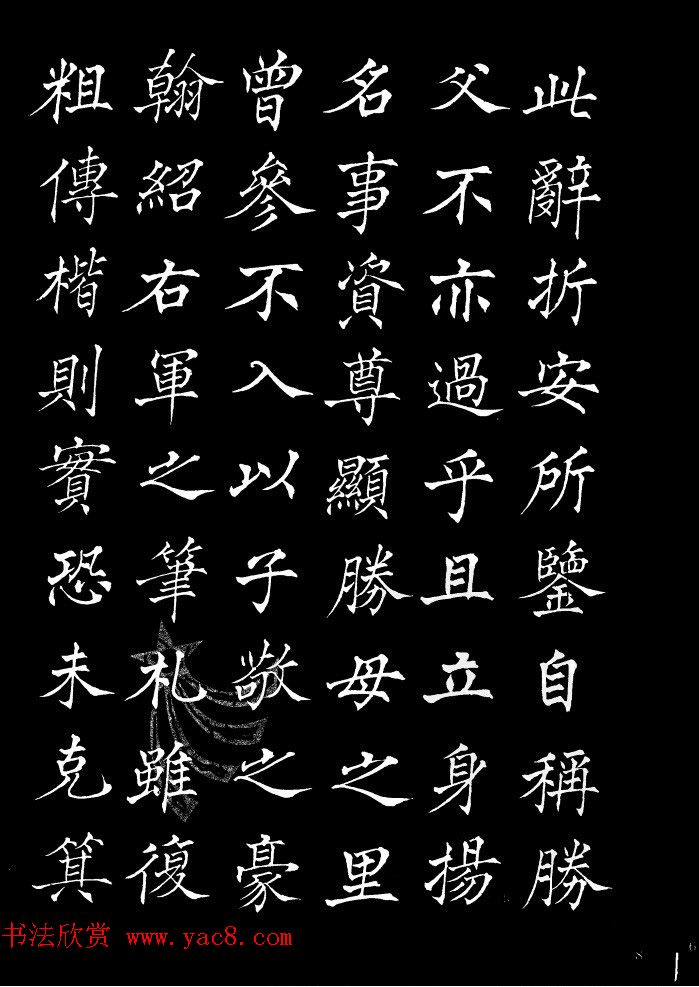 此辭折安所鑒自稱勝
父不亦過乎且立身揚
名事資尊顯勝母之里
曾參不入以子敬之豪
翰紹右軍之筆札雖復
粗傳楷則實恐未克箕
书法欣赏 www.yac8.com
8 6